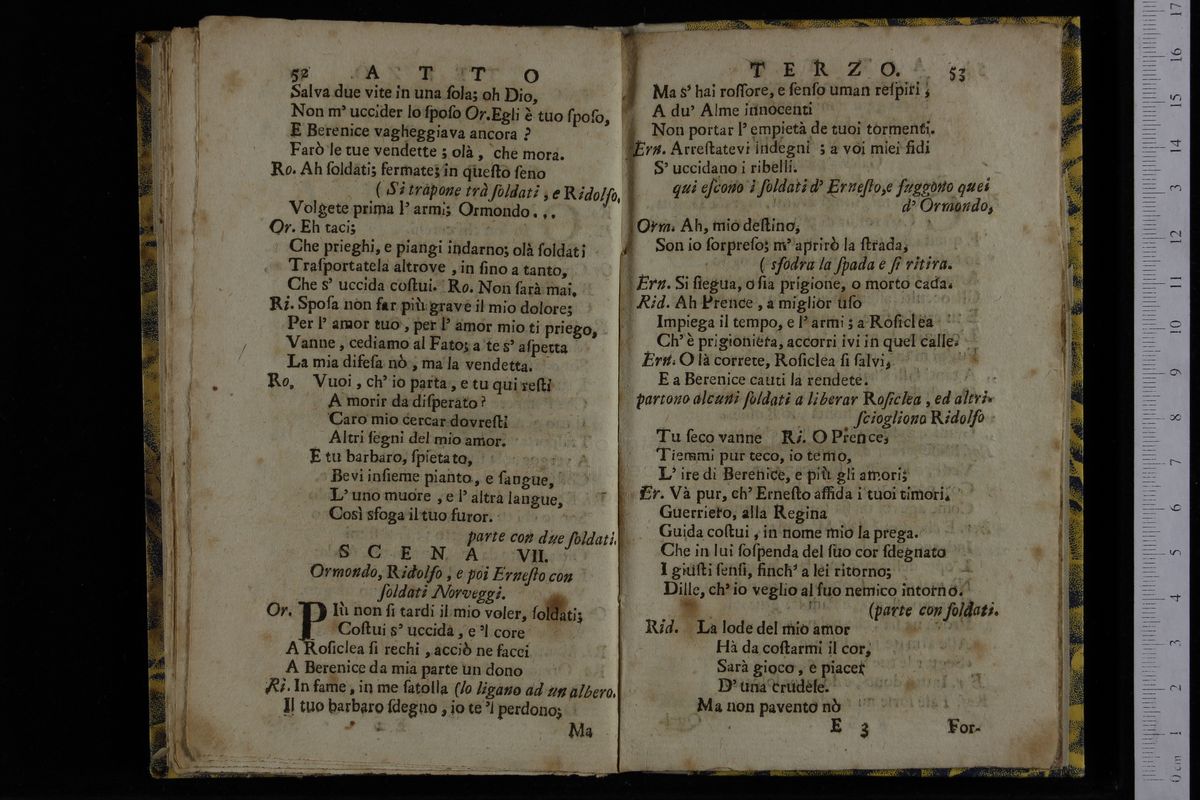 52 A T T O
Salva due vite in una ſola; oh Dio,
Non m' uccider lo ſpoſo Or. Egli è tuo ſpoſo,
E Berenice vagheggiava ancora ?
Farò le tue vendette ; olà , che mora.
Ro. Ah ſoldati; fermate; in queſto ſeno
( Si trapone trà ſoldati , e Ridolfo,
Volgete prima l' armi; Ormondo...
Or. Eh taci;
Che prieghi, e piangi indarno; olà ſoldati
Traſportatela altrove , in fino a tanto,
Che s' uccida coſtui. Ro. Non ſarà mai.
Ri. Spoſa non far più grave il mio dolore;
Per l' amor tuo , per l' amor mio ti priego,
Vanne , cediamo al Fato; a te s' aſpetta
La mia difeſa nò , ma la vendetta.
Ro, Vuoi , ch' io parta , e tu qui reſti
A morir da diſperato ?
Caro mio cercar dovreſti
Altri ſegni del mio amor.
E tu barbaro, ſpietato,
Bevi inſieme pianto , e ſangue,
L' uno muore , e l' altra langue,
Così sfoga il tuo furor.
parte con due ſoldati.
S C E N A VII.
Ormondo, Ridolfo , e poi Erneſto con
ſoldati Norveggi.
Or. PIù non ſi tardi il mio voler, ſoldati;
Coſtui s' uccida , e 'l core
A Roſiclea ſi rechi , acciò ne facci
A Berenice da mia parte un dono
Ri. In fame , in me ſatolla (lo ligano ad un albero.
Il tuo barbaro ſdegno , io te 'l perdono;
Ma
T E R Z O. 53
Ma s' hai roſſore, e ſenſo uman reſpiri ,
A du' Alme innocenti
Non portar l' empietà de tuoi tormenti.
Ern. Arreſtatevi indegni ; a voi miei fidi
S' uccidano i ribelli.
qui eſcono i ſoldati d' Erneſto,e fuggono quei
d' Ormondo,
Orm. Ah, mio deſtino,
Son io ſorpreſo; m' aprirò la ſtrada,
( sfodra la ſpada e ſi ritira.
Ern. Si ſiegua, o ſia prigione, o morto cada.
Rid. Ah Prence , a miglior uſo
Impiega il tempo, e l' armi ; a Roſiclea
Ch' è prigioniera, accorri ivi in quel calle.
Ern. O là correte, Roſiclea ſi ſalvi,
E a Berenice cauti la rendete.
partono alcuni ſoldati a liberar Roſiclea , ed altri
ſciogliono Ridolfo
Tu ſeco vanne Ri. O Prence,
Tiemmi pur teco, io temo,
L' ire di Berenice, e più gli amori;
Er. Và pur, ch' Erneſto affida i tuoi timori.
Guerriero, alla Regina
Guida coſtui , in nome mio la prega.
Che in lui ſoſpenda del ſuo cor ſdegnato
I giuſti ſenſi, finch' a lei ritorno;
Dille, ch' io veglio al ſuo nemico intorno.
(parte con ſoldati.
Rid. La lode del mio amor
Hà da coſtarmi il cor,
Sarà gioco , e piacer
D' una crudele.
Ma non pavento nò
E 3 For-